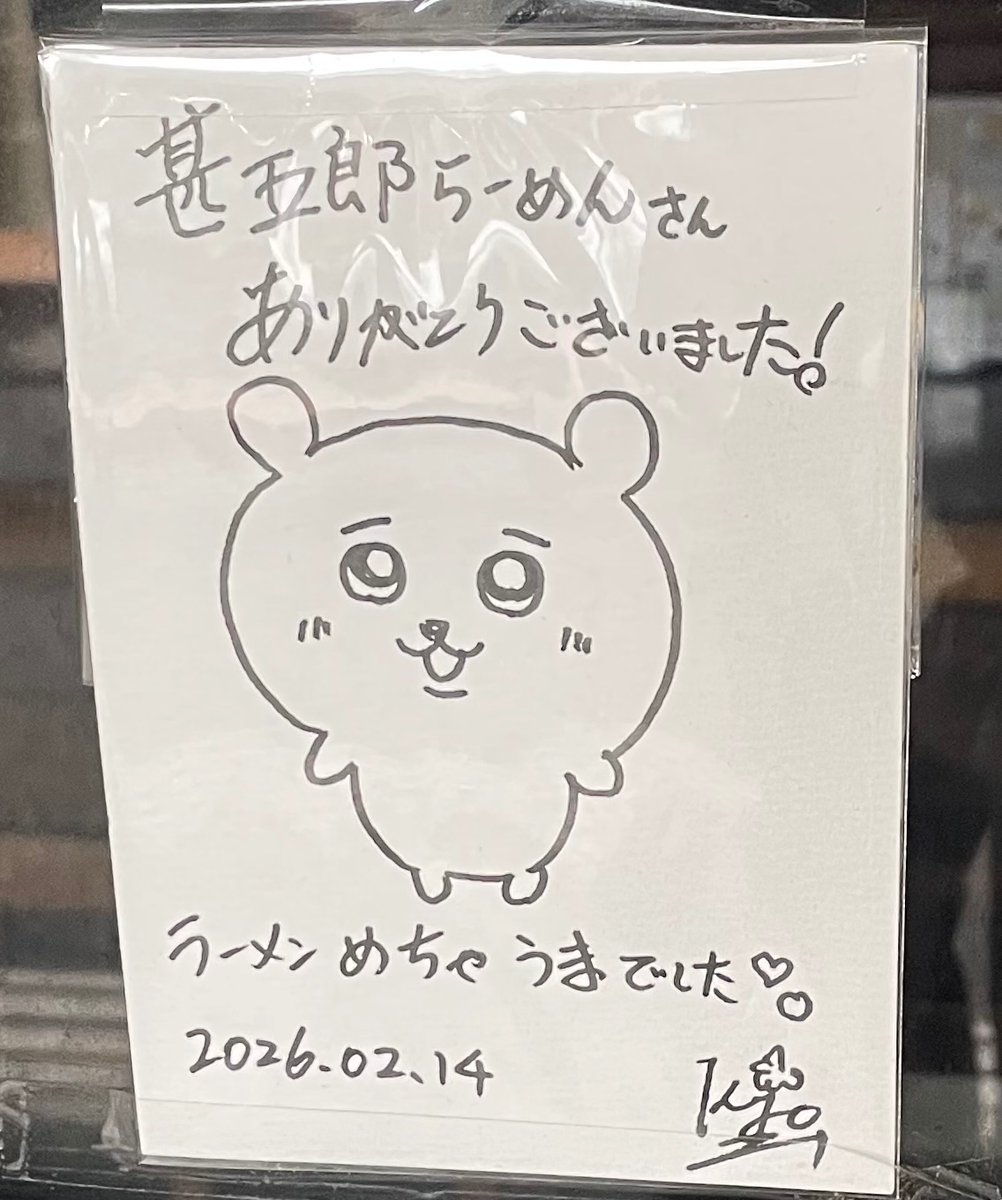 甚五郎らーめんさん
ありがとうございました!
ラーメンめちゃうまでした♡
2026.02.14